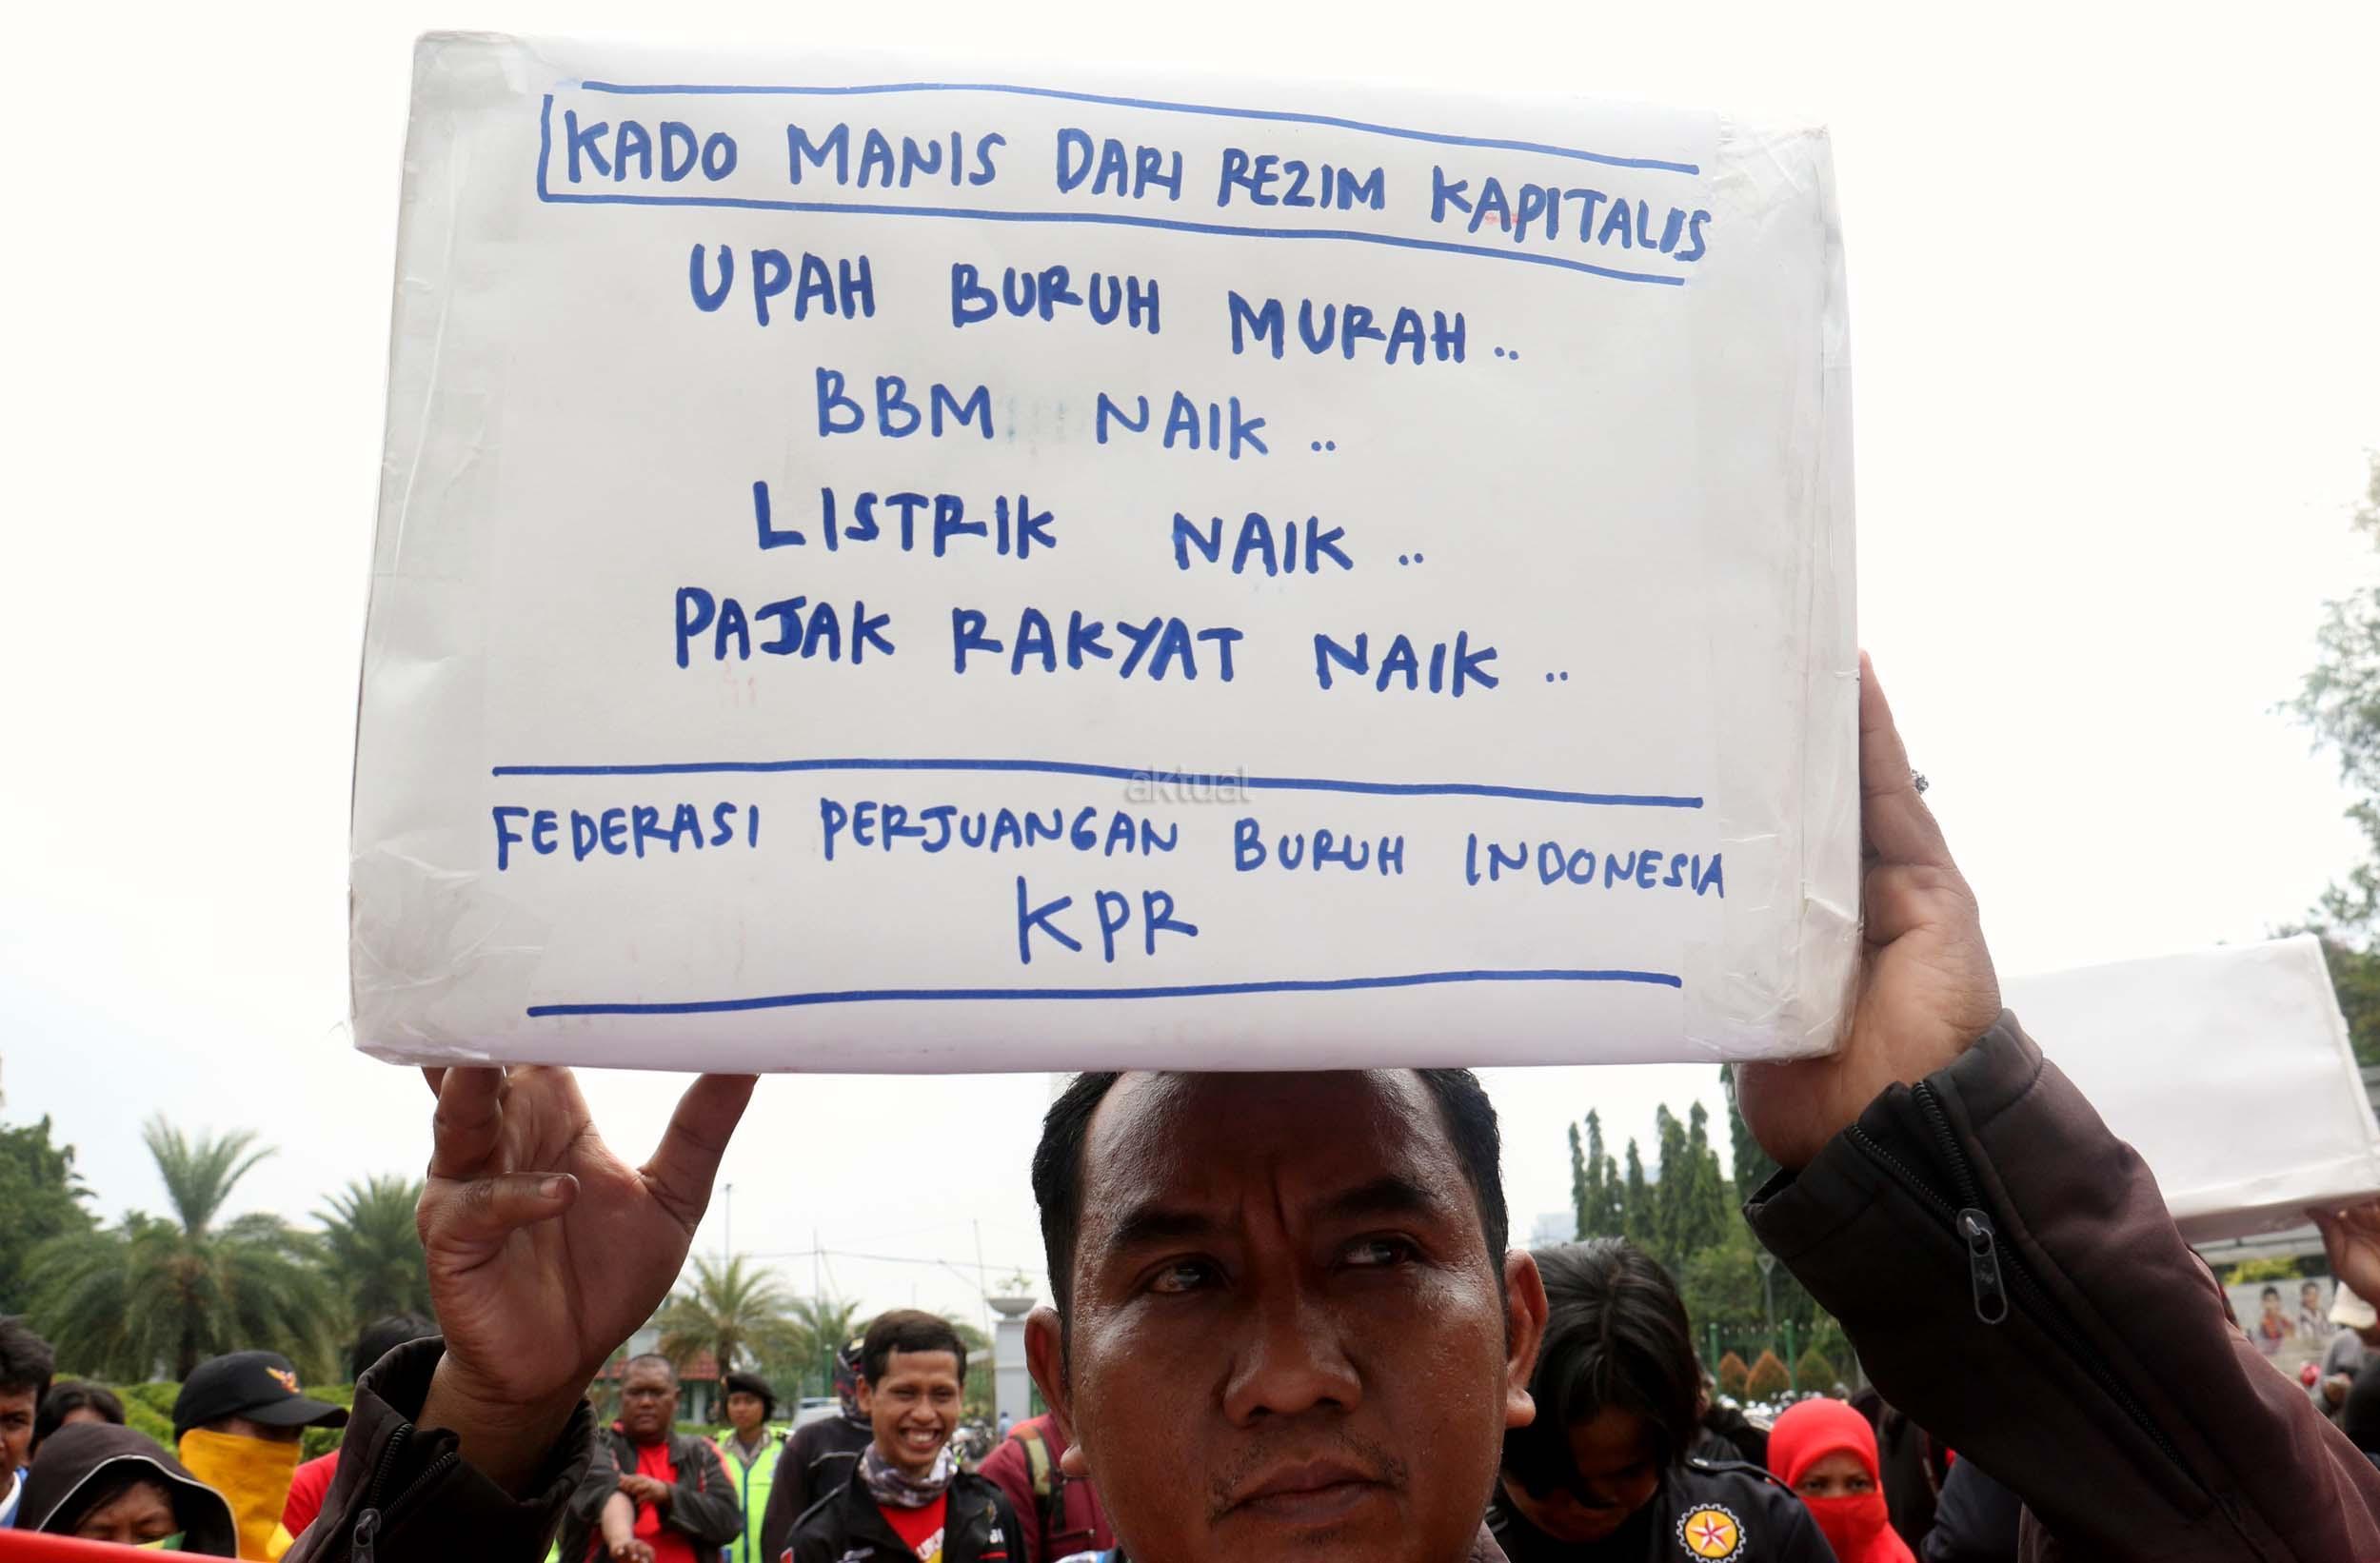 KADO MANIS DARI REZIM KAPITALIS
UPAH BURUH MURAH ..
BBM NAIK ..
LISTRIK NAIK ..
PAJAK RAKYAT NAIK ..
aktual
FEDERASI PERJUANGAN BURUH INDONESIA
KPR